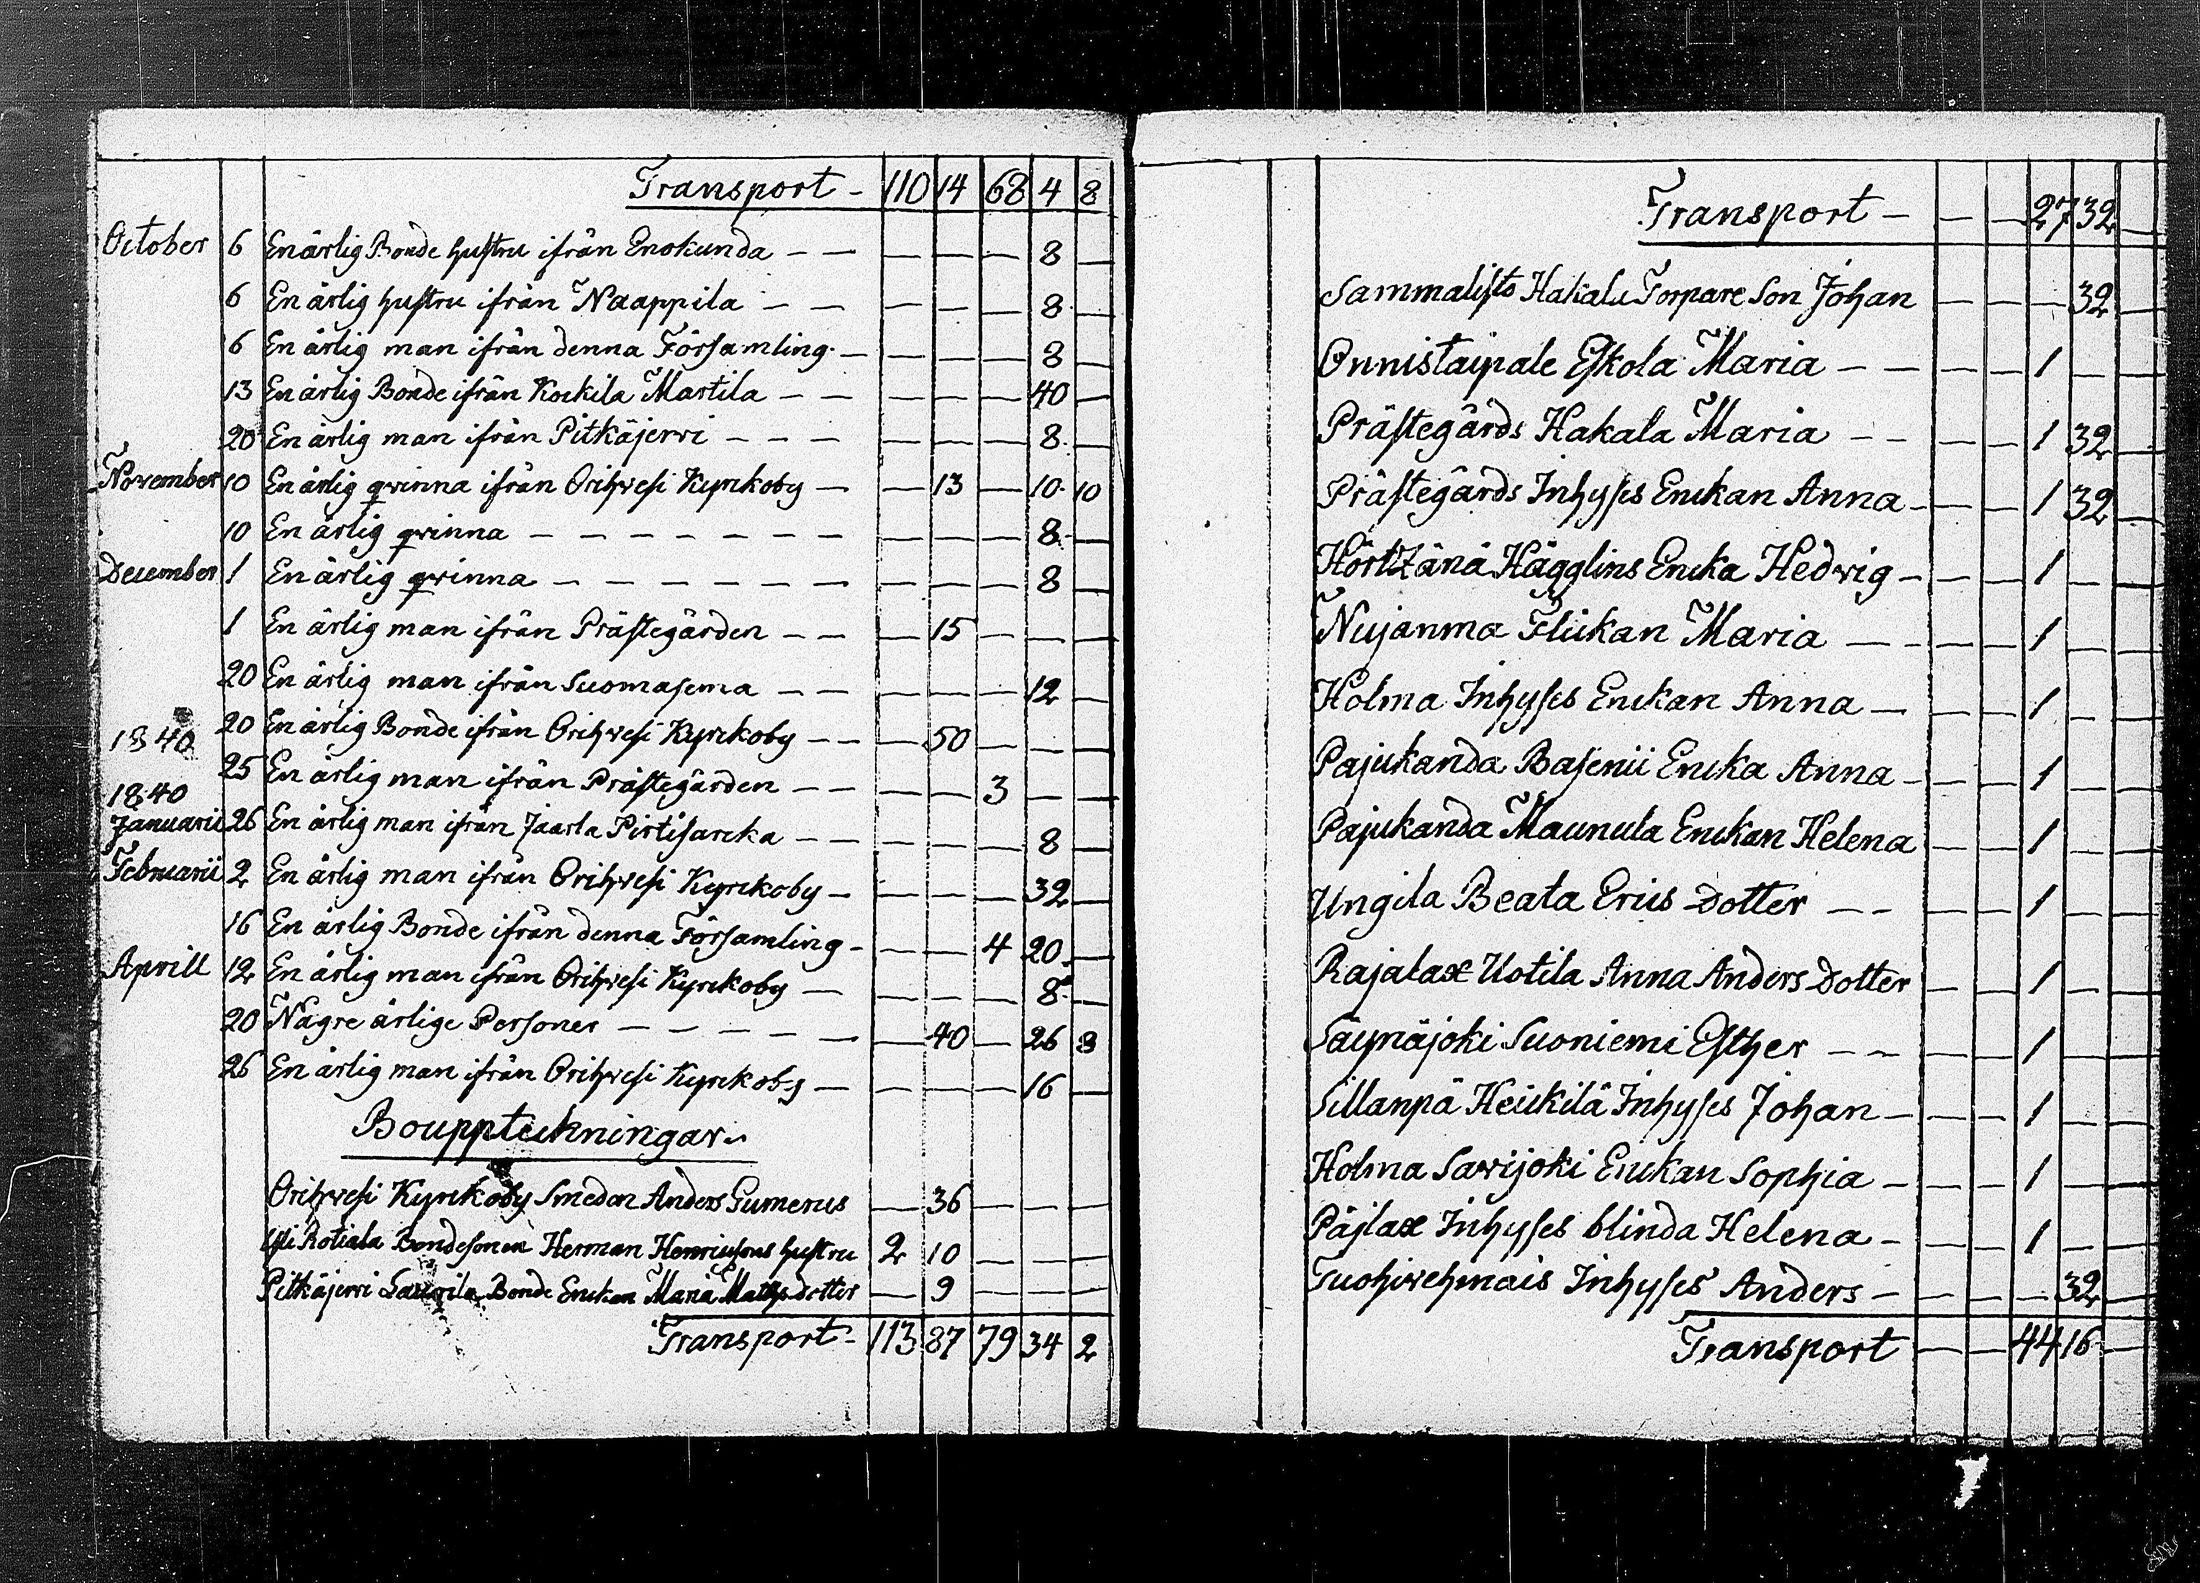 Transport - 110 14 68 4 8
October 6 En ärlig Bonde hustru ifrån Enokunda - - - - - 8 -
6 En ärlig hustru ifrån Naappila - - - - - 8 -
6 En ärlig man ifrån denna Församling - - - - 8 -
13 En ärlig Bonde ifrån Kockila Martila - - - - - 40 -
20 En ärlig man ifrån Pitkäjerwi - - - - - - 8 -
November 10 En ärlig qwinna ifrån Orihwesi Kyrckoby - - 13 - 10 10
10 En ärlig qwinna - - - - - - - - - - 8 -
December 1 En ärlig qwinna - - - - - - - - - - 8 -
1 En ärlig man ifrån Prästegården - - - 15 - - -
20 En ärlig man ifrån Suomasema - - - - - 12 -
20 En ärlig Bonde ifrån Orihwesi Kyrckoby - - - 50 - - -
1840
25 En ärlig man ifrån Prästegården - - - - 3 - -
1840
Januarii 26 En ärlig man ifrån Jäarla Pirtisarcka - - - - - 8 -
Februarii 2 En ärlig man ifrån Orihwesi Kyrckoby - - - - 32 -
16 En ärlig Bonde ifrån denna Församling - - - 4 20 -
Aprill 12 En ärlig man ifrån Orihwesi Kyrckoby - - - - 8 -
20 Någre ärlige Personer - - - - - - 40 - 26 8
26 En ärlig man ifrån Orihwesi Kyrckoby - - - - 16 -
Bouppteckningar
Orihwesi Kyrckoby Smeden Anders Gumerus - 36 - - -
Rotiala Bondesonen Herman Henricssons hustru 2 10 - - -
Pitkäjerwi Bonde Enckan Maria Matts dotter - 9 - - -
Transport - 113 87 79 34 2
Transport - - - 27 32 -
Sammalisto Hakala Torpare Son Johan - - - 32 -
Onnistaipale Eskola Maria - - - - 1 - -
Prästegårds Hakala Maria - - - - 1 32 -
Prästegårds Inhyses Enckan Anna - - - 1 32 -
Hörtzänä Hägglins Encka Hedwig - - - 1 - -
Nujanma Flickan Maria - - - - 1 - -
Holma Inhyses Enckan Anna - - - 1 - -
Pajukanda Basenii Encka Anna - - - 1 - -
Pajukanda Maunula Enckan Helena - - 1 - -
Ungila Beata Erics Dotter - - - - 1 - -
Rajalax Uotila Anna Anders Dotter - - 1 - -
Säynäjoki Suoniemi Esther - - - - 1 - -
Sillanpä Heickilä Inhyses Johan - - - 1 - -
Holma Sawijoki Enckan Sophia - - - 1 - -
Päjlax Inhyses blinda Helena - - - 1 - -
Inhyses Anders - - - - 32 -
Transport - - 44 16 -